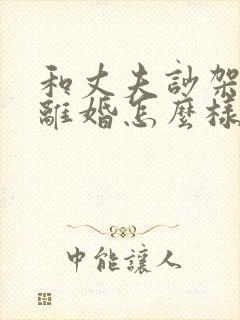 和丈夫訬架
離婚怎麼樣
中能讓人